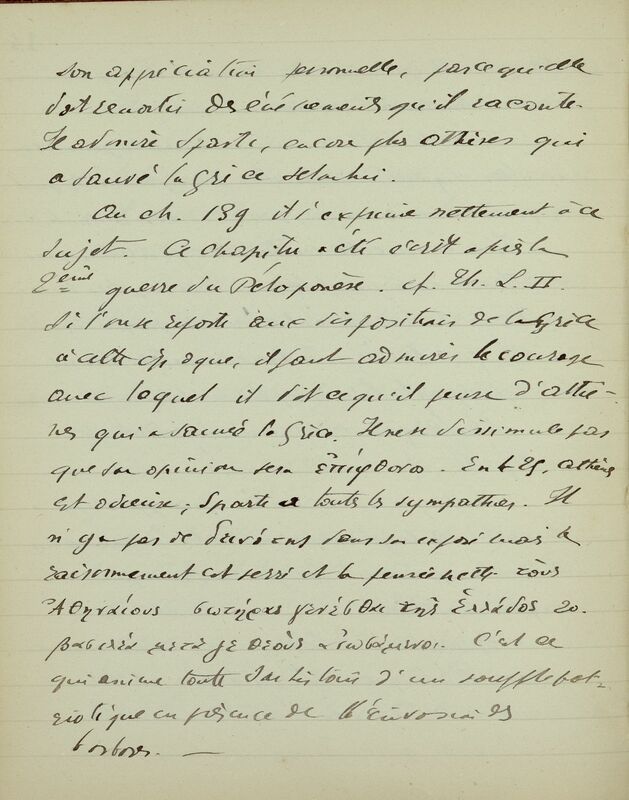 son appréciation personnelle, parce qu'elle
doit ressortir des événements qu'il raconte.
Il admire Sparte, encore plus Athènes qui
a sauvé la Grèce selon lui.
Au ch. 139 il s'exprime nettement à ce
sujet. Ce chapitre a été écrit après la
2ème guerre du Péloponèse. cf. Th. L. II.
Si l'on se reporte aux dispositions de la Grèce
à cette époque, il faut admirer le courage
avec lequel il dit ce qu'il pense d'Athè-
nes qui a sauvé la Grèce. Il ne se dissimule pas
que son opinion sera ἐπίφθονο. En 425, Athènes
est odieuse; Sparte a toutes les sympathies. Il
n'y a pas de δεινότης dans son exposé mais le
raisonnement est serré et la pensée nette. τοὺς
Ἀθηναίους σωτῆρας γενέσθαι τῆς Ἑλλάδος
βασιλέα μετά γε θεοὺς ἀνωσάμενοι. C'est ce
qui anime toute son histoire d'un souffle pat-
riotique en présence de l'invasion des
barbares. —